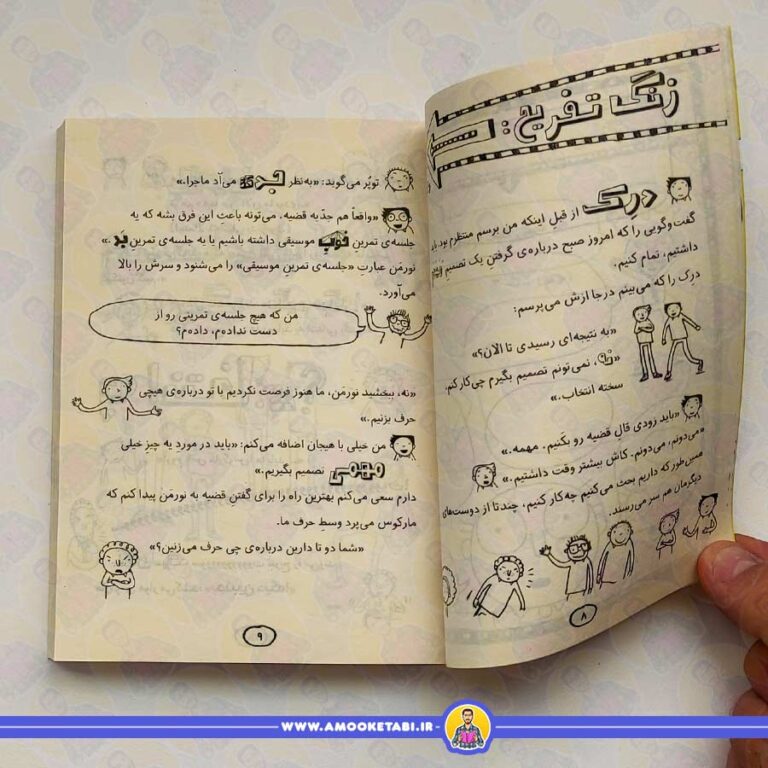 زنگ تفریح:
درک از قبلِ اینکه من برسم منتظرم بود. باید
گفت‌وگویی را که امروز صبح درباره‌ی گرفتنِ یک تصمیمِ
داشتیم، تمام کنیم.
درک را که می‌بینم درجا ازش می‌پرسم:
«به نتیجه‌ای رسیدی تا الان؟»
«نه، نمی‌تونم تصمیم بگیرم چی‌کار کنم.
سخته انتخاب.»
«باید زودی قالِ قضیه رو بکَنیم. مهمه.»
«می‌دونم، می‌دونم. کاش بیشتر وقت داشتیم.»
همین‌طور که داریم بحث می‌کنیم چه‌کار کنیم، چندتا از دوست‌های
دیگرمان هم سر می‌رسند.
۸
توپُر می‌گوید: «به‌نظر جدی می‌آد ماجرا.»
«واقعاً هم جدّیه قضیه، می‌تونه باعث این فرق بشه که یه
جلسه‌ی تمرینِ خوبِ موسیقی داشته باشیم یا یه جلسه‌ی تمرینِ بد.»
نورمَن عبارتِ «جلسه‌ی تمرین موسیقی» را می‌شنود و سرش را بالا
می‌آورد.
من که هیچ جلسه‌ی تمرینی رو از
دست نداده‌م، داده‌م؟
«نه، ببخشید نورمَن، ما هنوز فرصت نکردیم با تو درباره‌ی هیچی
حرف بزنیم.»
من خیلی با هیجان اضافه می‌کنم: «باید در موردِ یه چیزِ خیلی
مهمی تصمیم بگیریم.»
دارم سعی می‌کنم بهترین راه را برای گفتنِ قضیه به نورمَن پیدا کنم که
مارکوس می‌پرد وسط حرف ما.
«شما دو تا دارین درباره‌ی چی حرف می‌زنین؟»
۹
WWW.AMOOKETABI.IR